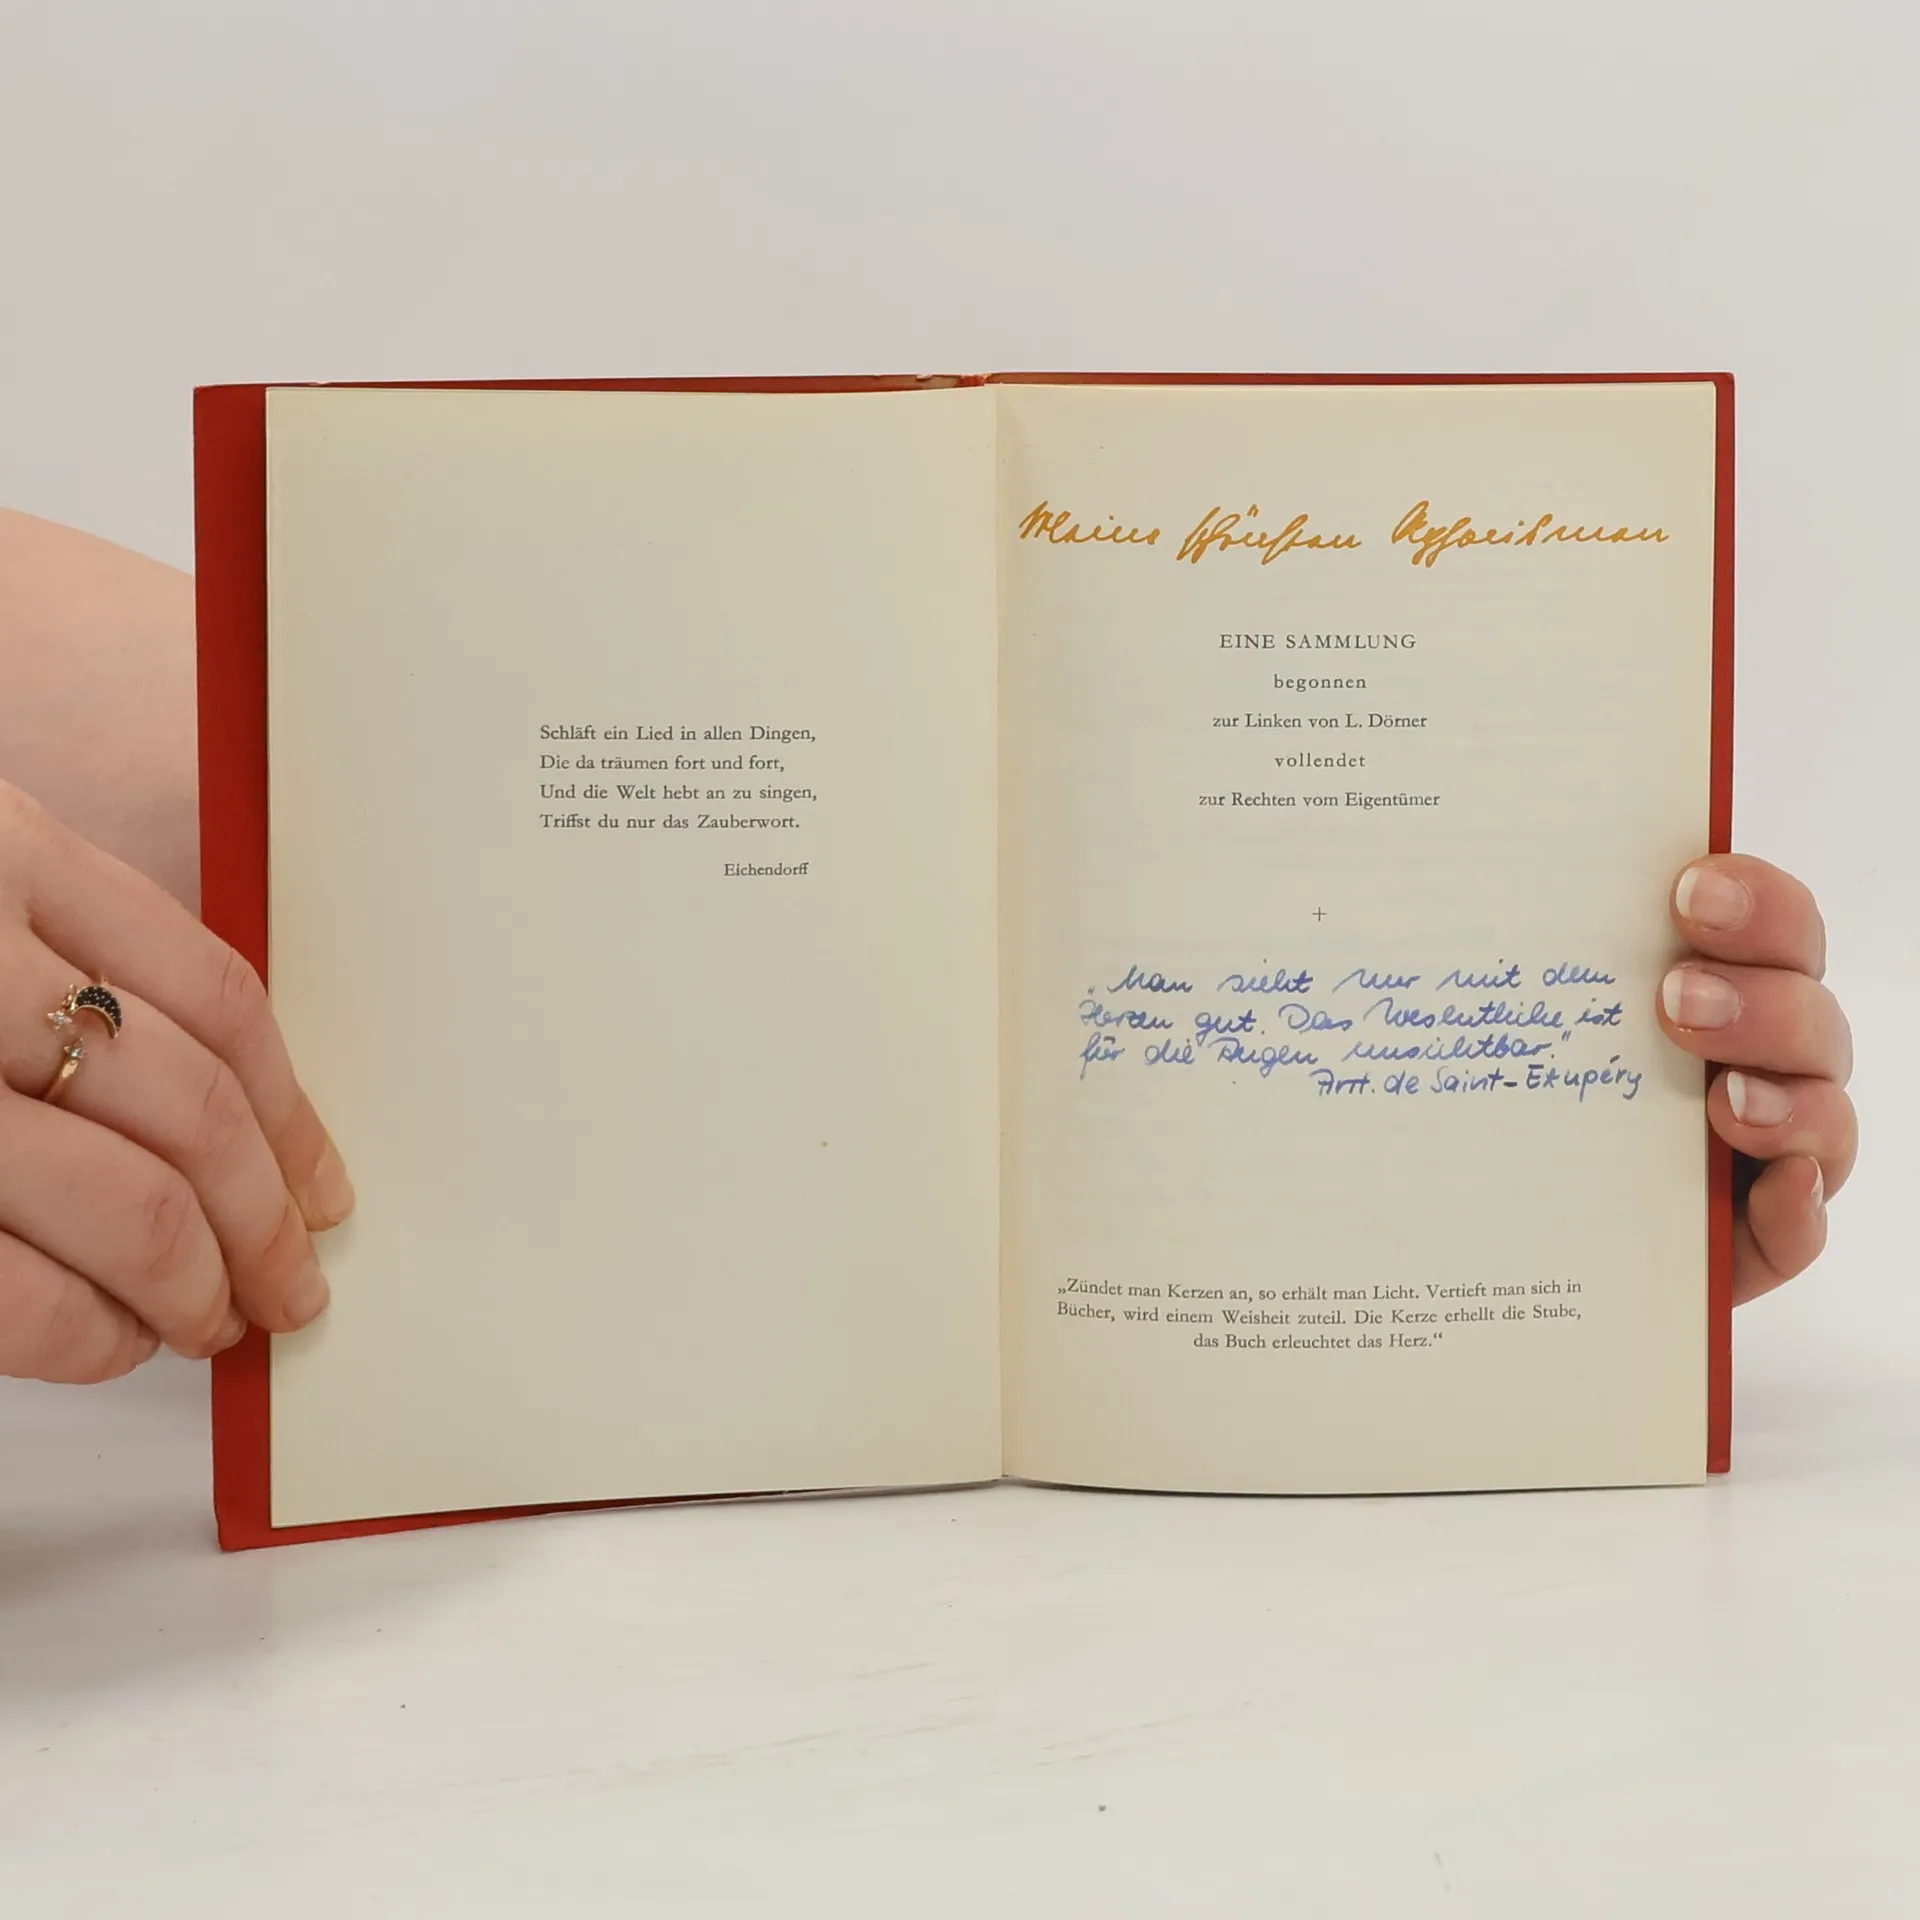 Schläft ein Lied in allen Dingen,
Die da träumen fort und fort,
Und die Welt hebt an zu singen,
Triffst du nur das Zauberwort.
Eichendorff
Meine schönsten Aphorismen
EINE SAMMLUNG
begonnen
zur Linken von L. Dörner
vollendet
zur Rechten vom Eigentümer
+
„Man sieht nur mit dem
Herzen gut. Das Wesentliche ist
für die Augen unsichtbar."
Ant. de Saint-Exupéry
„Zündet man Kerzen an, so erhält man Licht. Vertieft man sich in
Bücher, wird einem Weisheit zuteil. Die Kerze erhellt die Stube,
das Buch erleuchtet das Herz.“